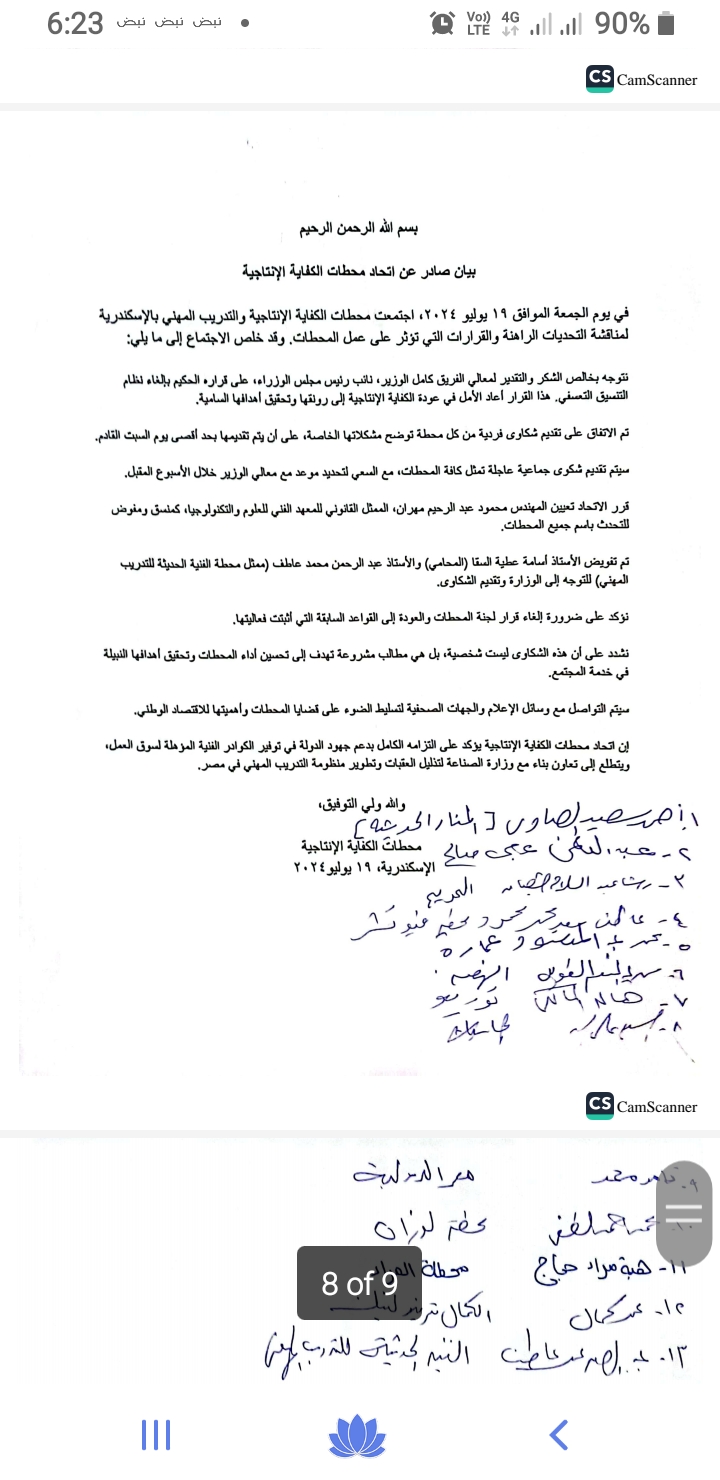 6:23 نبض نبض نبض • Vo)) LTE 4G 90%
CS CamScanner
بسم الله الرحمن الرحيم
بيان صادر عن اتحاد محطات الكفاية الإنتاجية
في يوم الجمعة الموافق ١٩ يوليو ٢٠٢٤، اجتمعت محطات الكفاية الإنتاجية والتدريب المهني بالإسكندرية
لمناقشة التحديات الراهنة والقرارات التي تؤثر على عمل المحطات. وقد خلص الاجتماع إلى ما يلي:
نتوجه بخالص الشكر والتقدير لمعالي الفريق كامل الوزير، نائب رئيس مجلس الوزراء، على قراره الحكيم بإلغاء نظام
التنسيق التعسفي. هذا القرار أعاد الأمل في عودة الكفاية الإنتاجية إلى رونقها وتحقيق أهدافها السامية.
تم الاتفاق على تقديم شكاوى فردية من كل محطة توضح مشكلاتها الخاصة، على أن يتم تقديمها بحد أقصى يوم السبت القادم.
سيتم تقديم شكوى جماعية عاجلة تمثل كافة المحطات، مع السعي لتحديد موعد مع معالي الوزير خلال الأسبوع المقبل.
قرر الاتحاد تعيين المهندس محمود عبد الرحيم مهران، الممثل القانوني للمعهد الفني للعلوم والتكنولوجيا، كمنسق ومفوض
للتحدث باسم جميع المحطات.
تم تفويض الأستاذ أسامة عطية السقا (المحامي) والأستاذ عبد الرحمن محمد عاطف (ممثل محطة الفنية الحديثة للتدريب
المهني) للتوجه إلى الوزارة وتقديم الشكاوى.
نؤكد على ضرورة إلغاء قرار لجنة المحطات والعودة إلى القواعد السابقة التي أثبتت فعاليتها.
نشدد على أن هذه الشكاوى ليست شخصية، بل هي مطالب مشروعة تهدف إلى تحسين أداء المحطات وتحقيق أهدافها النبيلة
في خدمة المجتمع.
سيتم التواصل مع وسائل الإعلام والجهات الصحفية لتسليط الضوء على قضايا المحطات وأهميتها للاقتصاد الوطني.
إن اتحاد محطات الكفاية الإنتاجية يؤكد على التزامه الكامل بدعم جهود الدولة في توفير الكوادر الفنية المؤهلة لسوق العمل،
ويتطلع إلى تعاون بناء مع وزارة الصناعة لتذليل العقبات وتطوير منظومة التدريب المهني في مصر.
والله ولي التوفيق،
محطات الكفاية الإنتاجية
الإسكندرية، ١٩ يوليو ٢٠٢٤
١- سعيد الصاوى [المنار الحديثة]
٢- عبد الرحمن صالح
٣-
٤- محمد محمود محطة
٥-
٦- النهضة
٧- هاله
٨-
CS CamScanner
٩- محمد مصر الدولية
١٠- محمد أحمد محطة
١١- هبة مراد حجاج محطة
١٢- عمر كمال الكمال
١٣- عبد الرحمن محمد عاطف الفنية الحديثة للتدريب المهني
8 of 9